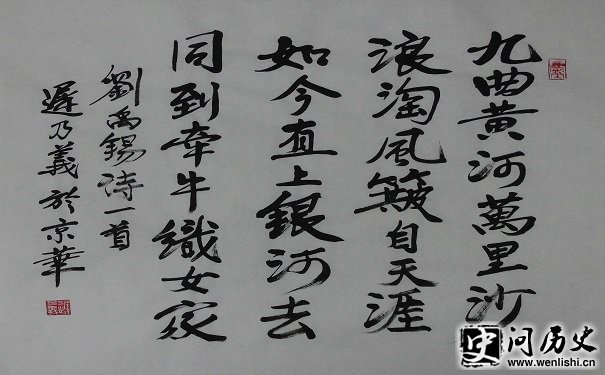 九曲黄河萬里沙
浪淘風簸自天涯
如今直上銀河去
同到牽牛織女家
劉禹錫詩一首
遲乃義於京華
史问历史
www.wenlishi.cn